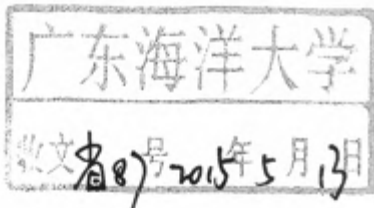 广东海洋大学
收文省87号2015年5月13日